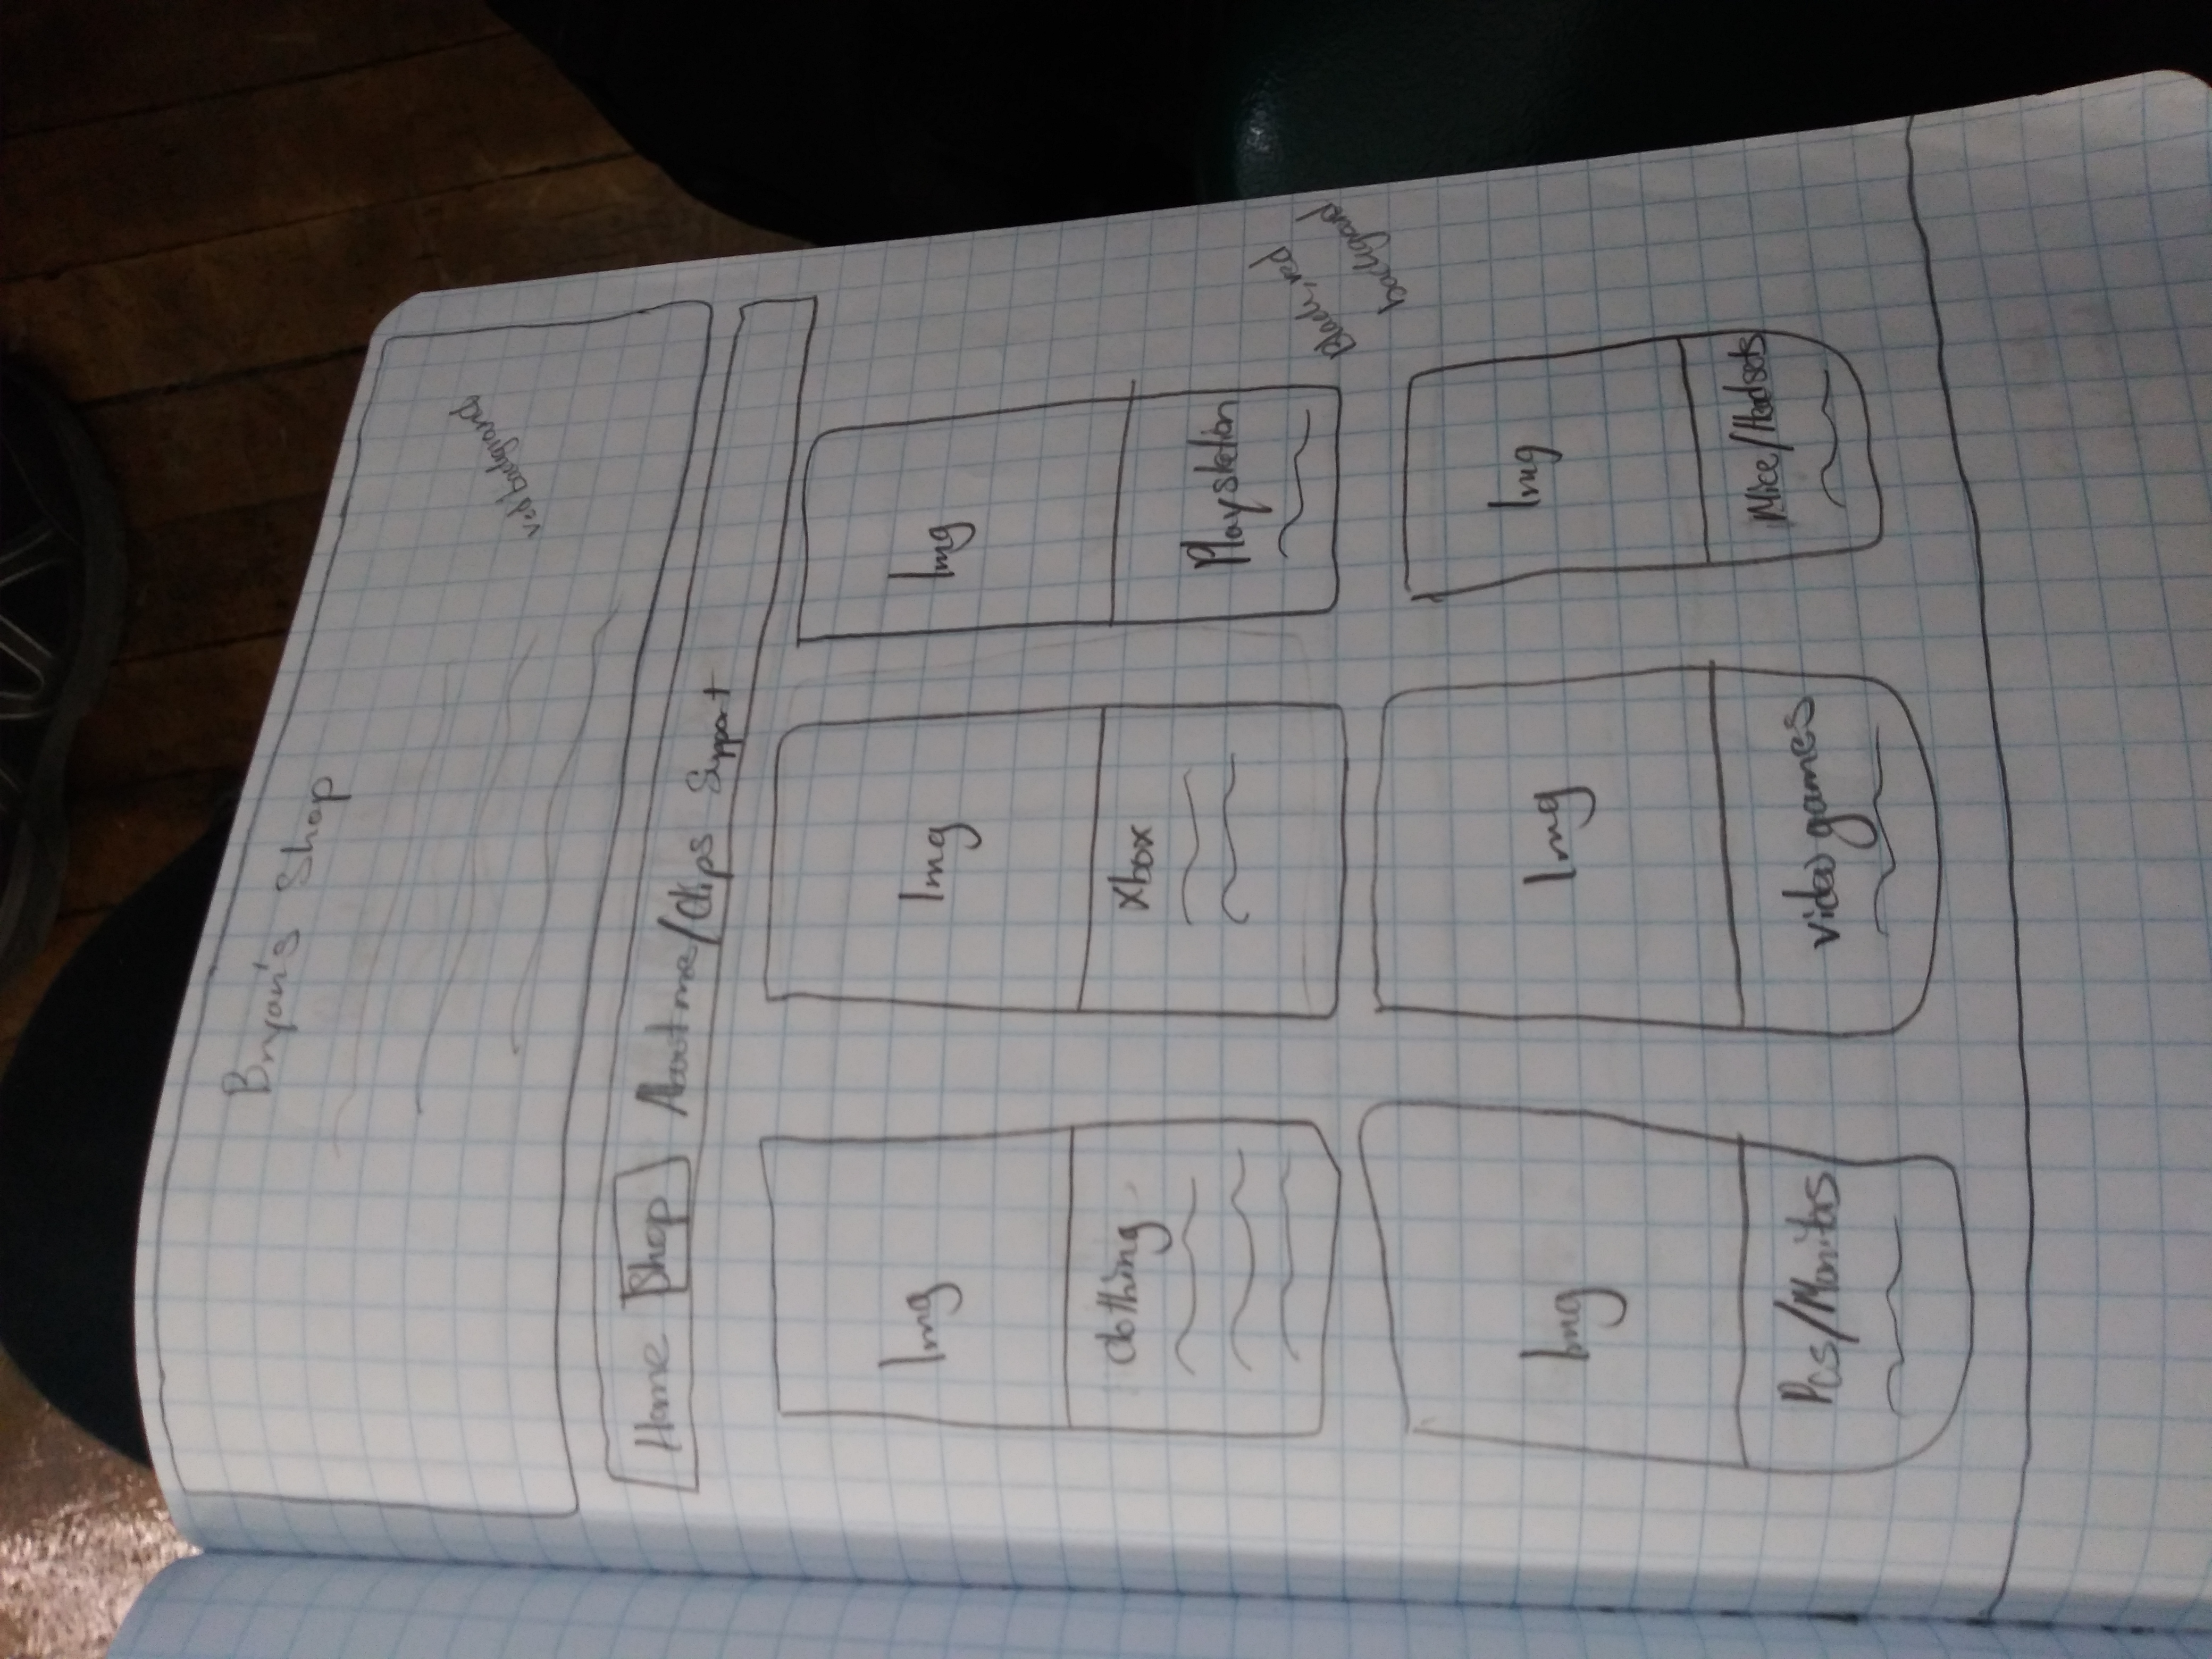 Bryan's Shop
red background
Home Shop About me/Clips Support
Img Img Img
Clothing Xbox Playstation
Black, red
background
Img Img Img
Pcs/Monitors video games Mice/Headsets